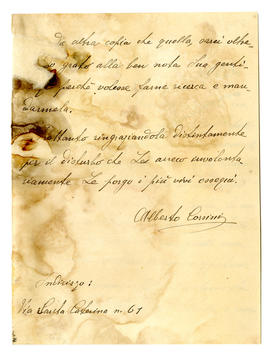 da altra copia che quella, sarei oltre-
o grato alla ben nota Sua genti-
perchè volesse farne ricerca e man
darmela.
ttanto ringraziandola distintamente
per il disturbo che Le arreco involonta
riamente Le porgo i più vivi ossequi.
Alberto
Indirizzo:
Via Santa Caterina n. 61